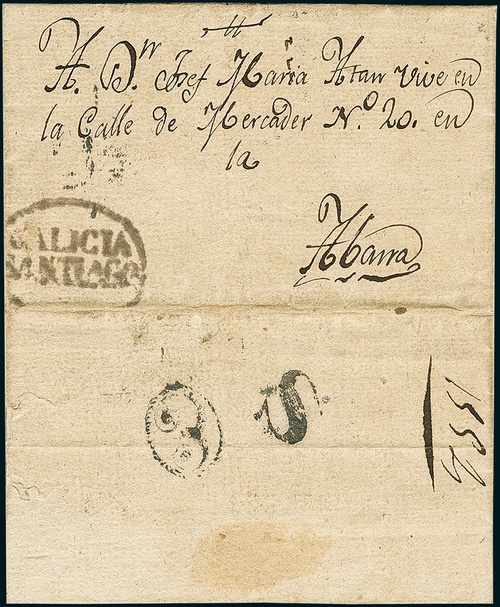 A. Dⁿ Josef Maria Atan Vive en
la Calle de Mercader Nº. 20. en
la
Abana
GALICIA
SANTIAGO
S